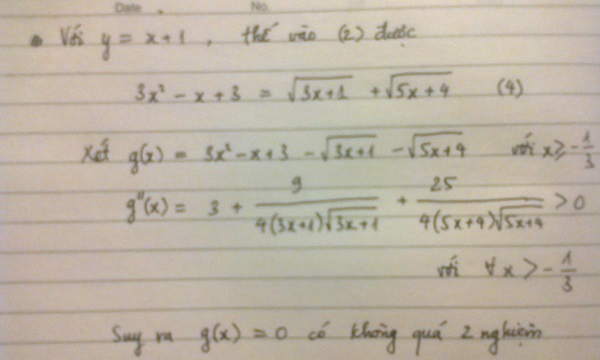 Date No.
• Với y = x+1 , thế vào (2) được
3x² - x + 3 = √(3x+1) + √(5x+4) (4)
Xét g(x) = 3x² - x + 3 - √(3x+1) - √(5x+4) với x ≥ -1/3
g''(x) = 3 + 9/(4(3x+1)√(3x+1)) + 25/(4(5x+4)√(5x+4)) > 0
với ∀x > -1/3
Suy ra g(x) = 0 có không quá 2 nghiệm